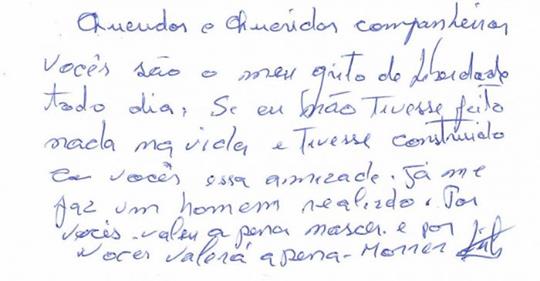 Queridos e Queridas companheiros
vocês são o meu grito de Liberdade
todo dia, Se eu não Tivesse feito
nada na vida e Tivesse construido
com vocês essa amizade. Já me
faz um homem realizado. Por
vocês valeu a pena nascer e por
Voces valerá a pena - Morrer